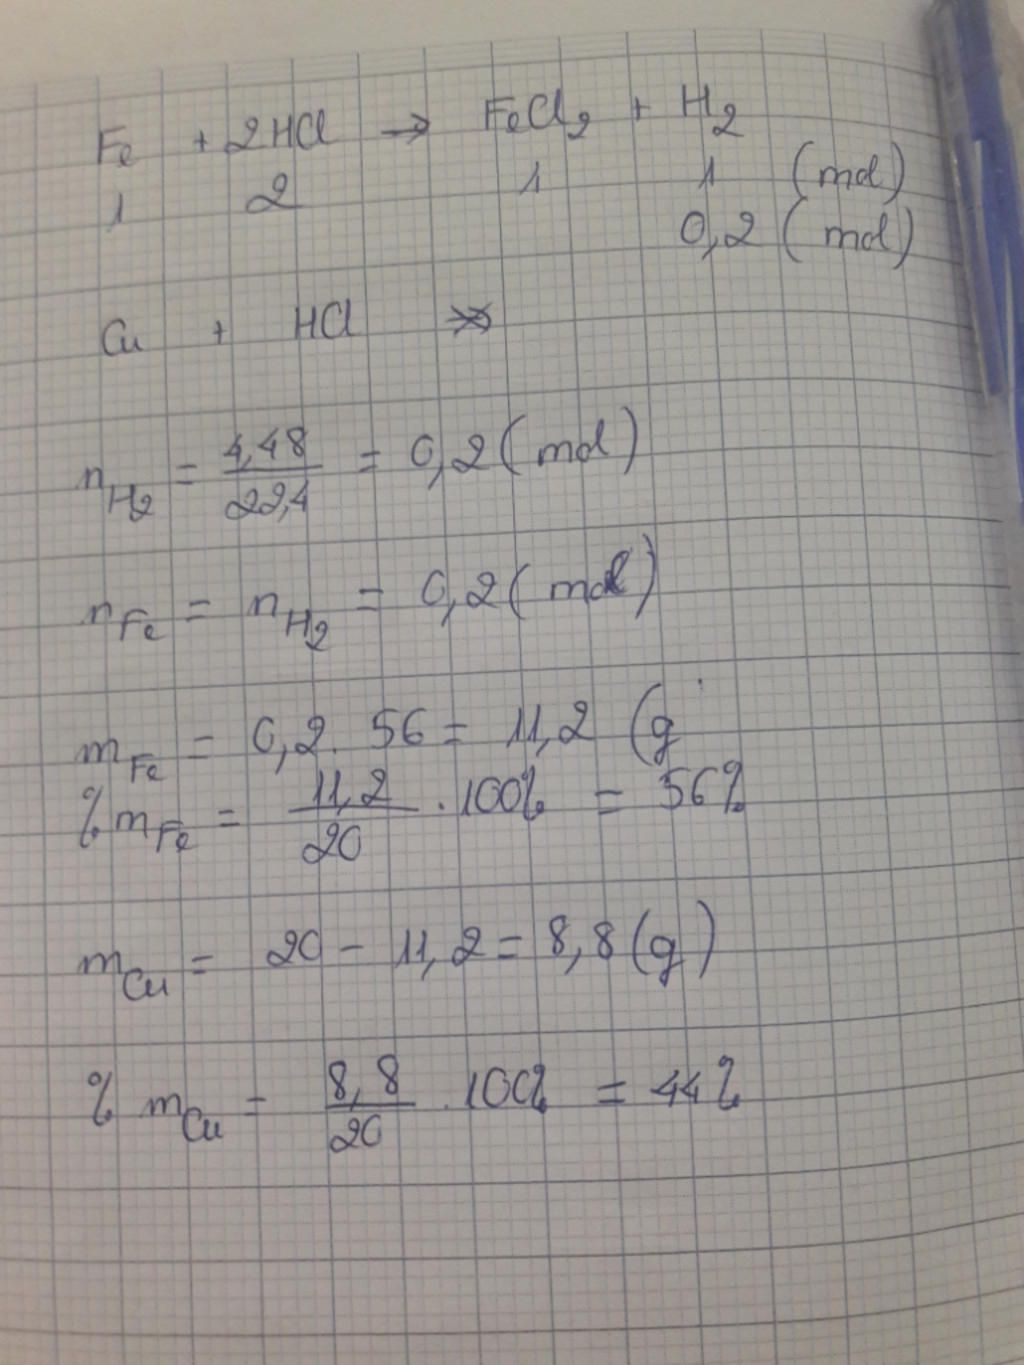 Fe + 2HCl → FeCl2 + H2
1 2 1 1 (mol)
0,2 (mol)
Cu + HCl ↛
nH2 = 4,48/22,4 = 0,2 (mol)
nFe = nH2 = 0,2 (mol)
mFe = 0,2 . 56 = 11,2 (g
% mFe = 11,2/20 . 100% = 56%
mCu = 20 - 11,2 = 8,8 (g)
% mCu = 8,8/20 . 100% = 44%